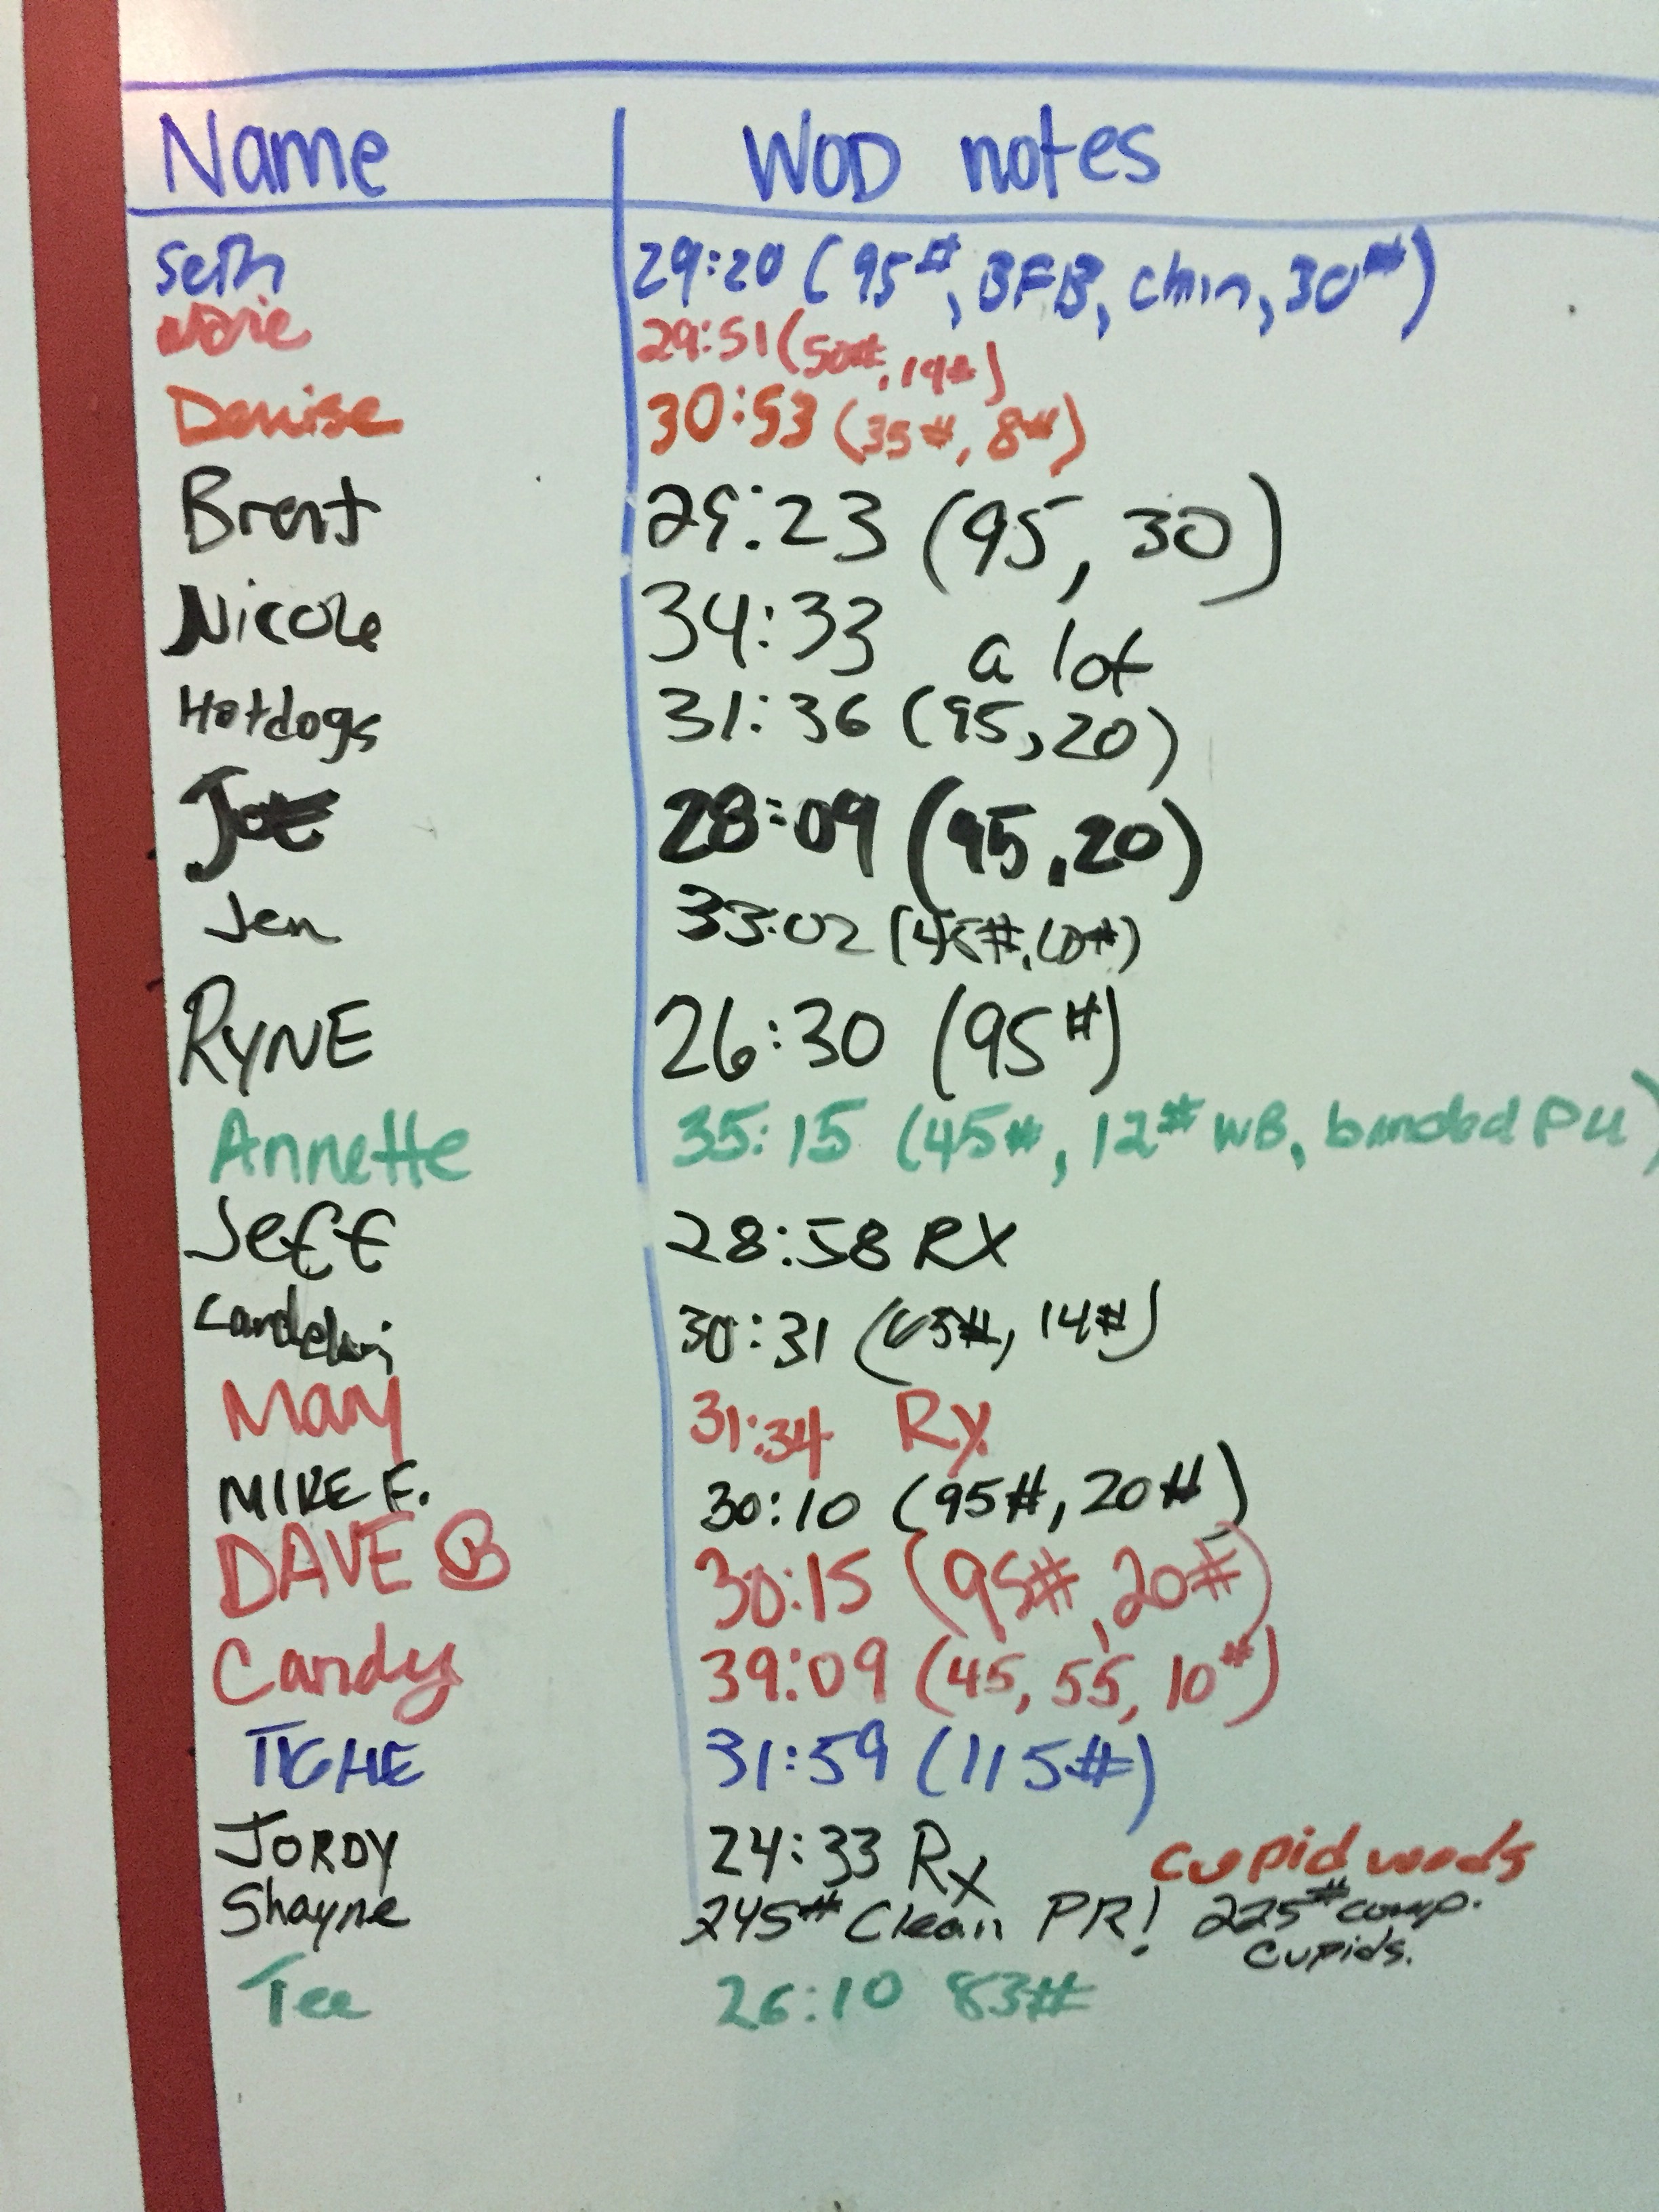 Name WOD notes
Seth 29:20 (95#, BFB, chin, 30#)
29:51 (50#, 14#)
Denise 30:53 (35#, 8#)
Brent 29:23 (95, 30)
Nicole 34:33 a lot
Hotdogs 31:36 (95, 20)
JOE 28:09 (95, 20)
Jen 33:02 (45#, 10#)
RYNE 26:30 (95#)
Annette 35:15 (45#, 12# WB, banded PU)
Jeff 28:58 RX
30:31 (65#, 14#)
Mary 31:34 Rx
MIKE F. 30:10 (95#, 20#)
DAVE B 30:15 (95#, 20#)
Candy 39:09 (45, 55, 10#)
TIGHE 31:59 (115#)
JORDY 24:33 Rx cupid
Shayne 245# Clean PR! 225# comp.
cupids.
Tee 26:10 83#